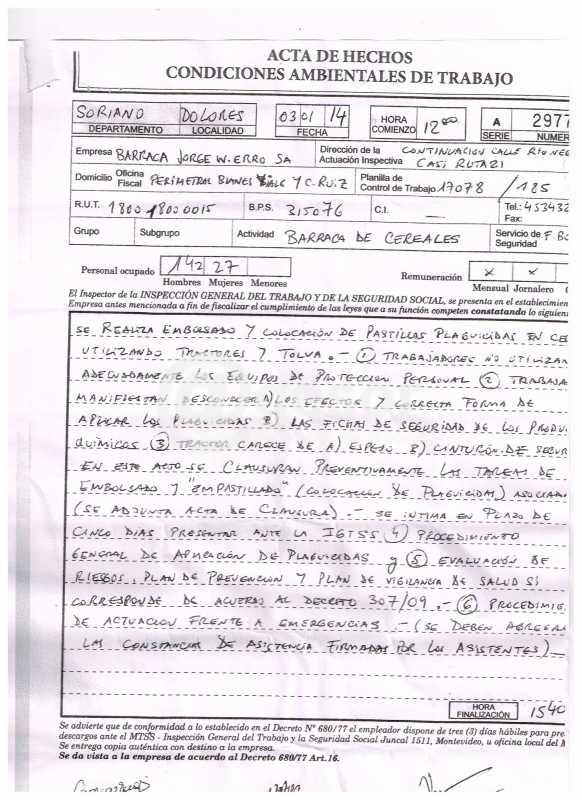 ACTA DE HECHOS
CONDICIONES AMBIENTALES DE TRABAJO
SORIANO DOLORES 03 01 14 HORA COMIENZO 12 00 A 2977
DEPARTAMENTO LOCALIDAD FECHA SERIE NUMER
Empresa BARRACA JORGE W. ERRO SA Dirección de la Actuación Inspectiva CONTINUACION CALLE RIO NE CASI RUTA 21
Domicilio Oficina Fiscal PERIMETRAL BLANES VIALE Y C. RUIZ Planilla de Control de Trabajo 17078 /185
R.U.T. B.P.S. 315076 C.I. — Tel.: 453432
Fax:
Grupo Subgrupo Actividad BARRACA DE CEREALES Servicio de Seguridad
Personal ocupado 142 27 Remuneración x x
Hombres Mujeres Menores Mensual Jornalero
El Inspector de la INSPECCIÓN GENERAL DEL TRABAJO Y DE LA SEGURIDAD SOCIAL, se presenta en el establecimien
Empresa antes mencionada a fin de fiscalizar el cumplimiento de las leyes que a su función competen constatando lo siguien
SE REALIZA EMBOLSADO Y COLOCACIÓN DE PASTILLAS PLAGUICIDAS EN CE
UTILIZANDO TRACTORES Y TOLVA.- ① TRABAJADORES NO UTILIZAN
ADECUADAMENTE LOS EQUIPOS DE PROTECCION PERSONAL ② TRABAJA
MANIFIESTAN DESCONOCER A) LOS EFECTOS Y CORRECTA FORMA DE
APLICAR LOS PLAGUICIDAS B) LAS FICHAS DE SEGURIDAD DE LOS PRODU
QUIMICOS ③ TRACTOR CARECE DE A) ESPEJO B) CINTURÓN DE SEGUR
EN ESTE ACTO SE CLAUSURAN PREVENTIVAMENTE LAS TAREAS DE
EMBOLSADO Y "EMPASTILLADO" (COLOCACION DE PLAGUICIDAS) ASOCIADA
(SE ADJUNTA ACTA DE CLAUSURA).- SE INTIMA EN PLAZO DE
CINCO DIAS PRESENTAR ANTE LA IGTSS 4) PROCEDIMIENTO
GENERAL DE APLICACIÓN DE PLAGUICIDAS Y ⑤ EVALUACIÓN DE
RIESGOS, PLAN DE PREVENCION Y PLAN DE VIGILANCIA DE SALUD SI
CORRESPONDE DE ACUERDO AL DECRETO 307/09.- ⑥ PROCEDIMIE
DE ACTUACION FRENTE A EMERGENCIAS.- (SE DEBEN AGREGAR
LAS CONSTANCIAS DE ASISTENCIA FIRMADAS POR LOS ASISTENTES)—
HORA FINALIZACIÓN 1540
Se advierte que de conformidad a lo establecido en el Decreto N° 680/77 el empleador dispone de tres (3) días hábiles para pre
descargos ante el MTSS - Inspección General del Trabajo y la Seguridad Social Juncal 1511, Montevideo, u oficina local del M
Se entrega copia auténtica con destino a la empresa.
Se da vista a la empresa de acuerdo al Decreto 680/77 Art.16.